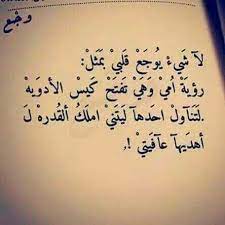 وجع
لآ شيءْ يُوجَع قلبيْ بمَثلْ:
رؤيَة أميْ وَهيْ تفتح كَيسْ الأدوَيه
.لتَنآولْ احدهآ ليَتنيْ املَكْ ألقُدره لَ
أهديَهآ عآفيَتيْ !,